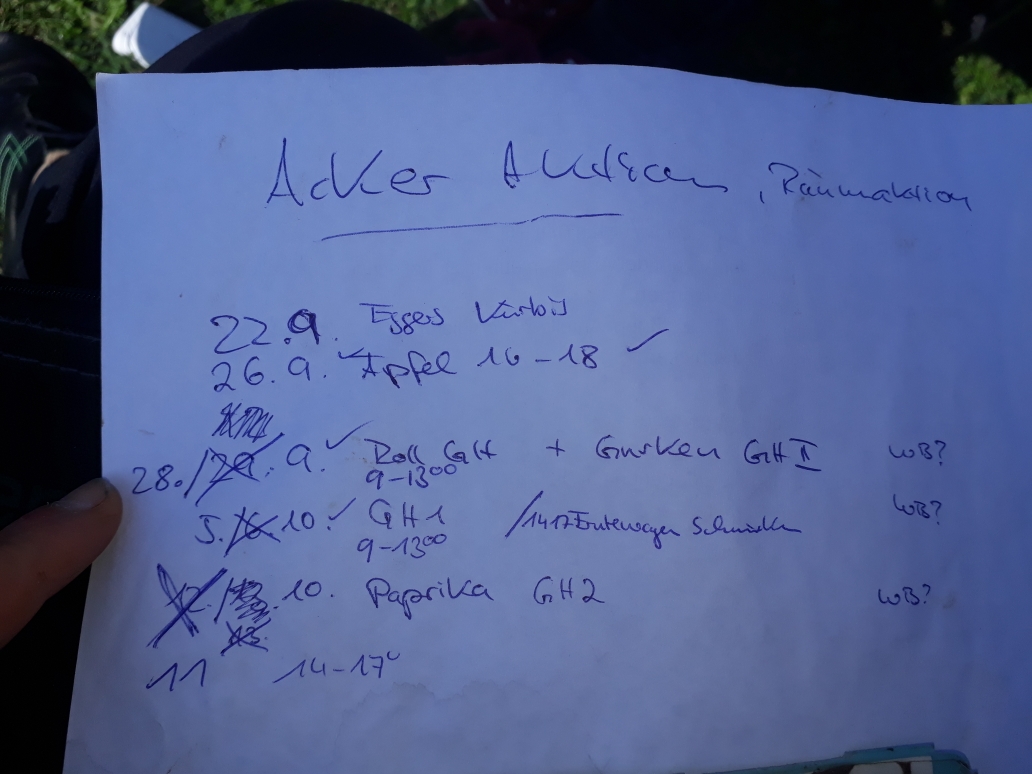 Acker Aktion, Räumaktion
22.9. Eggers Kürbis
26.9. ✓ Äpfel 16-18 ✓
28./29. 9. ✓ Roll GH + Gurken GH II WB?
9-13⁰⁰
5./6. 10. ✓ GH1 /14-17 Erntewagen Schmücken WB?
9-13⁰⁰
12./ 10. Paprika GH2 WB?
13.
11 14-17